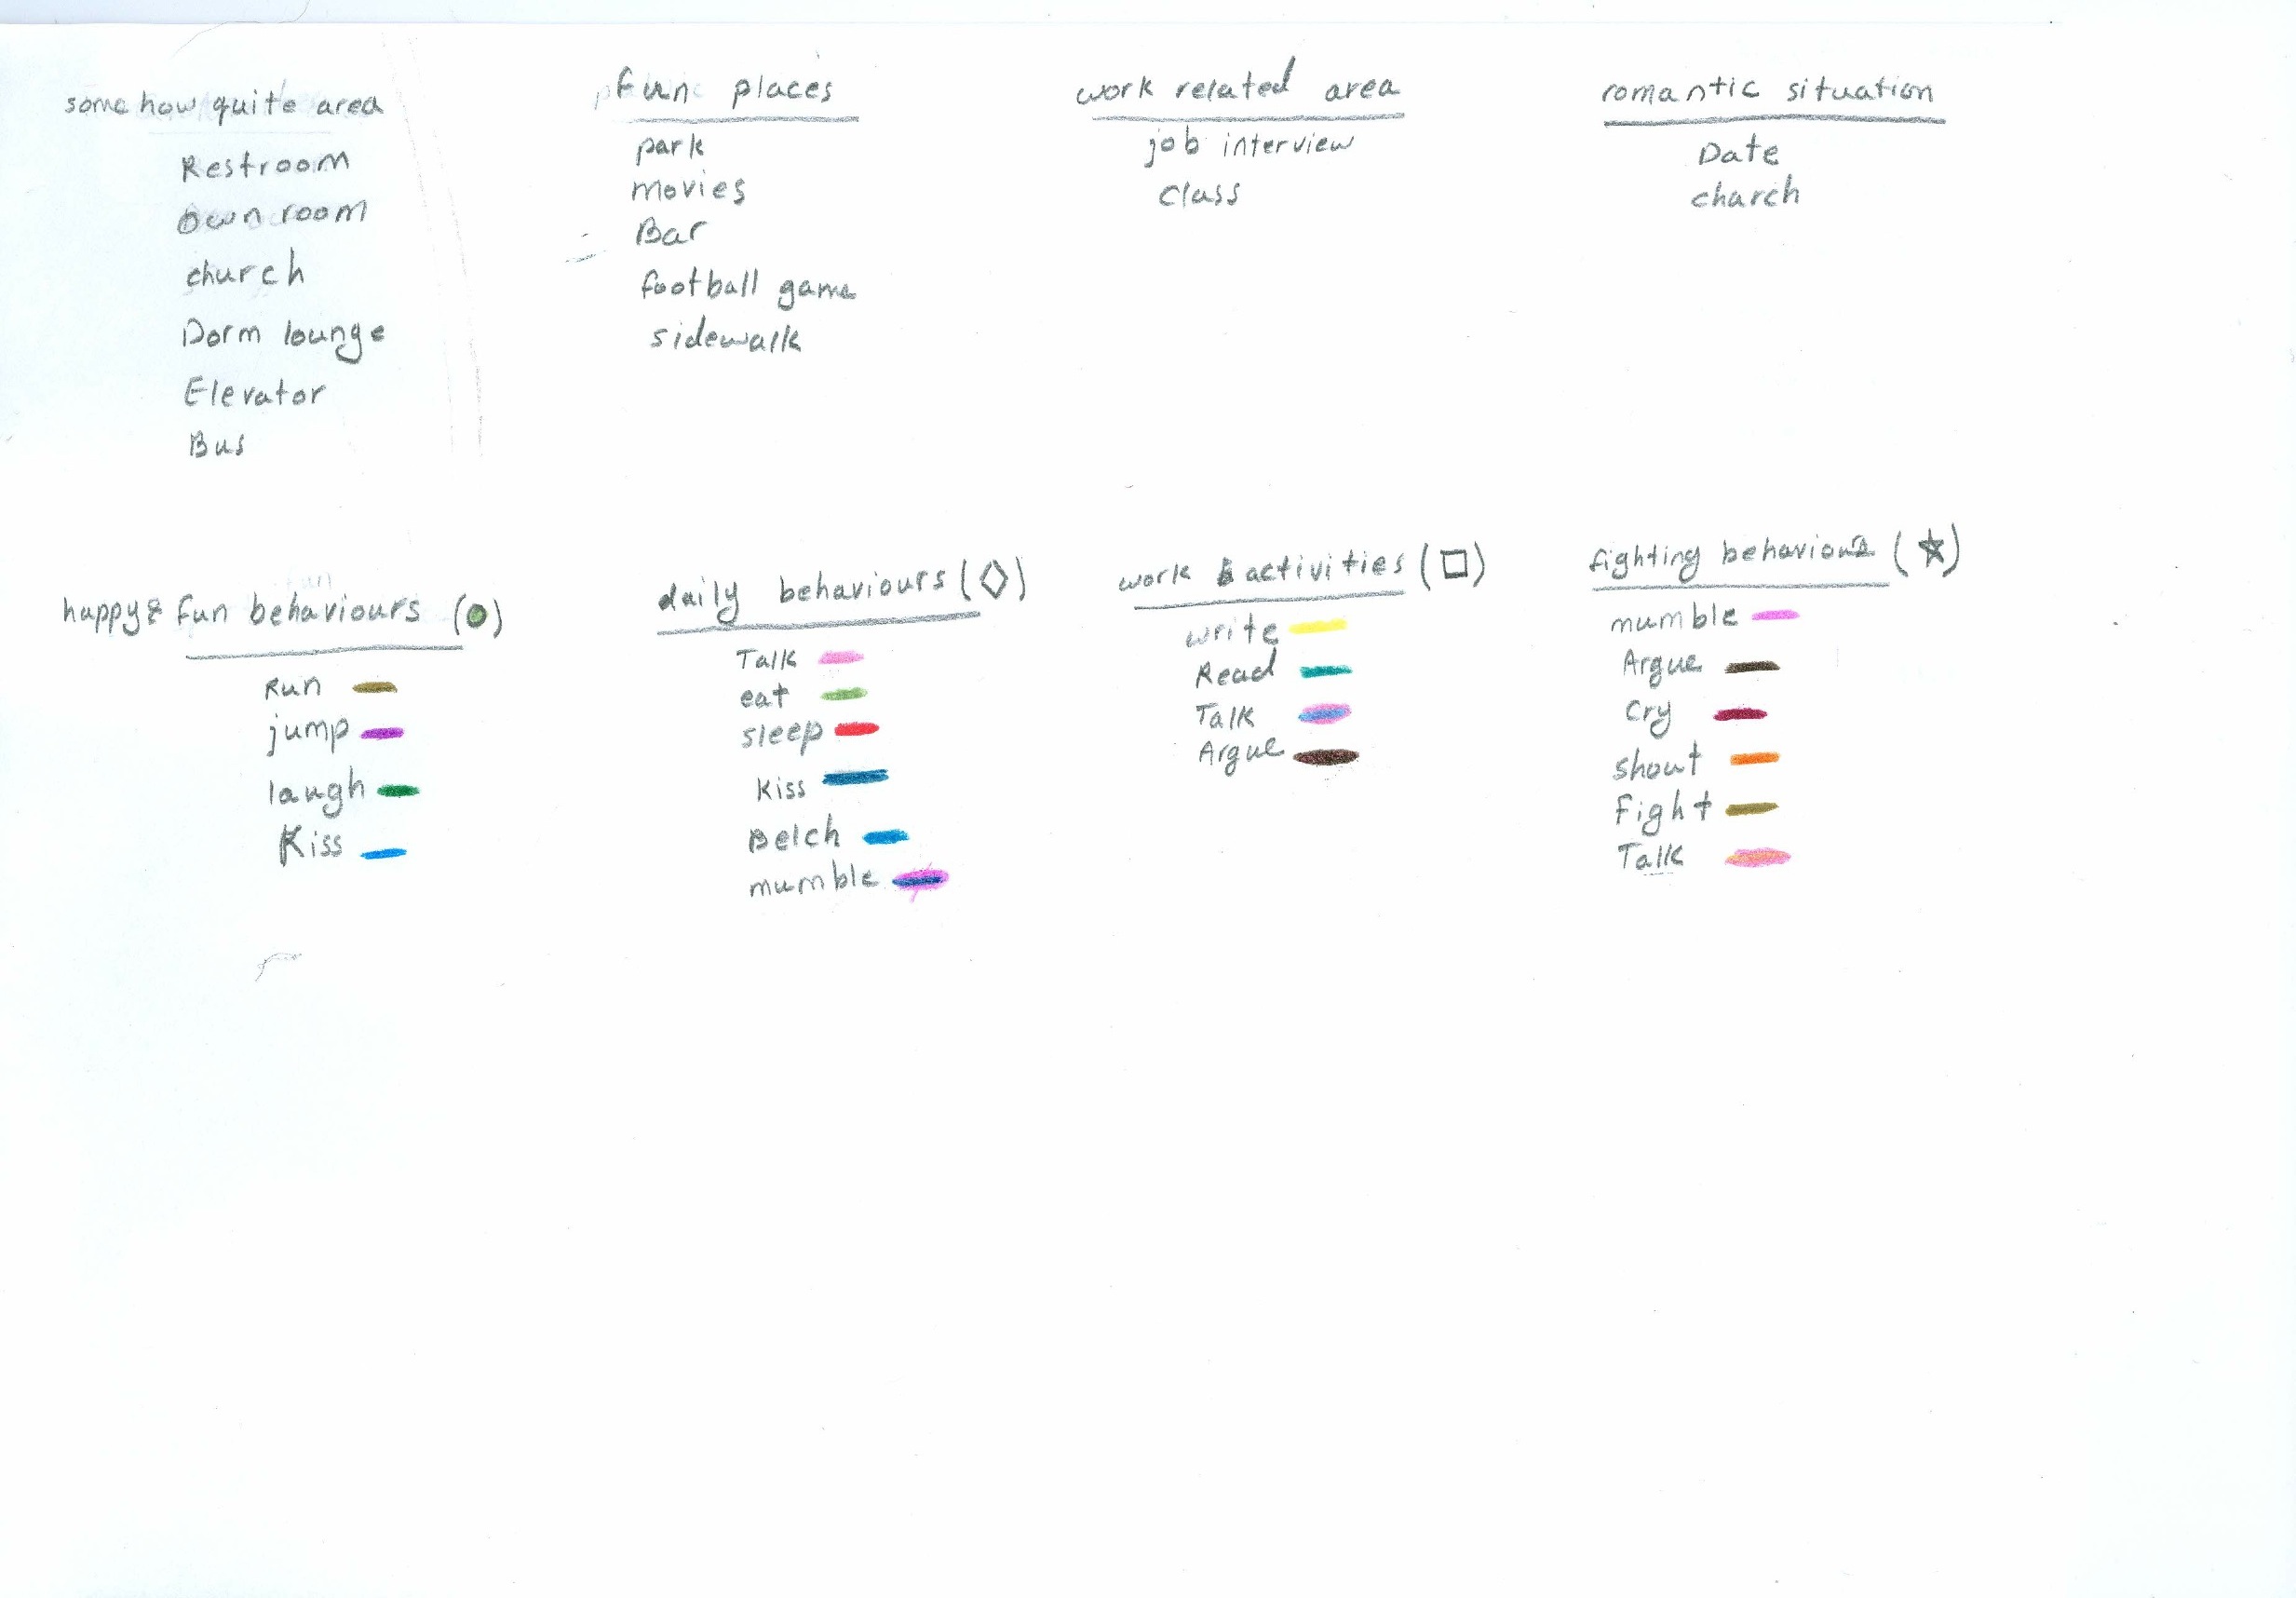 some how quite area
Restroom
own room
church
Dorm lounge
Elevator
Bus
fun places
park
movies
Bar
football game
sidewalk
work related area
job interview
class
romantic situation
Date
charch
happy & fun behaviours ( )
Run
jump
laugh
Kiss
daily behaviours (◇)
Talk
eat
sleep
Kiss
Belch
mumble
work activities (□)
write
Read
Talk
Argue
fighting behaviours (☆)
mumble
Argue
Cry
shout
Fight
Talk